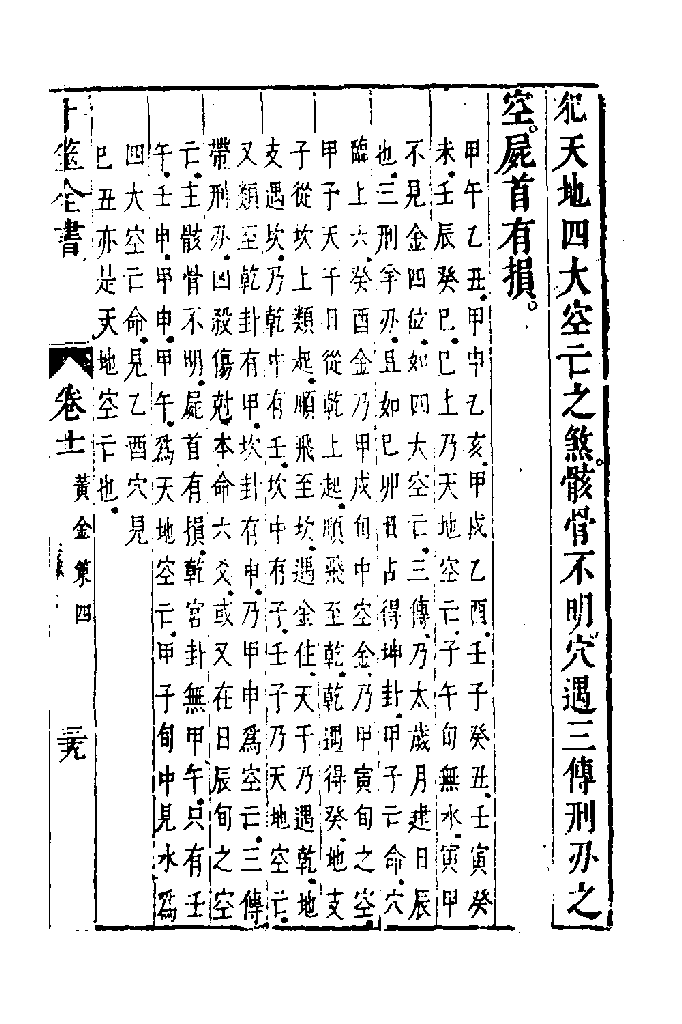 犯天地四大空亡之煞。骸骨不明。穴遇三傳刑刃之
空。屍首有損。
甲午乙丑。甲申乙亥。甲戌乙酉。壬子癸丑。壬寅癸
未。壬辰癸巳。巳上乃天地空亡。子午旬無水。寅甲
不見金。四位。如四大空亡。三傳。乃太歲月建日辰
也。三刑爭刃。且如巳卯丑占得坤卦。甲子亡命。穴
臨上六。癸酉金。乃甲戌旬中空金。乃甲寅旬之空。
甲子天干日從乾上起。順飛至乾。乾遇得癸。地支
子從坎上類起。順飛至坎。遇金住。天干乃遇乾。地
支遇坎。乃乾中有壬。坎中有子。壬子乃天地空亡。
又類至乾卦有甲。坎卦有申。乃甲申爲空亡。三傳
帶刑刃。凶殺傷尅。本命六爻。或又在日辰旬之空
亡。主骸骨不明。屍首有損。乾宮卦無甲午。只有壬
午。壬申。甲申。甲午。爲天地空亡。甲子旬中見水爲
四大空亡命。見乙酉穴見
巳丑亦是天地空亡也。
卜筮全書
卷十一
黃金策四
三十九